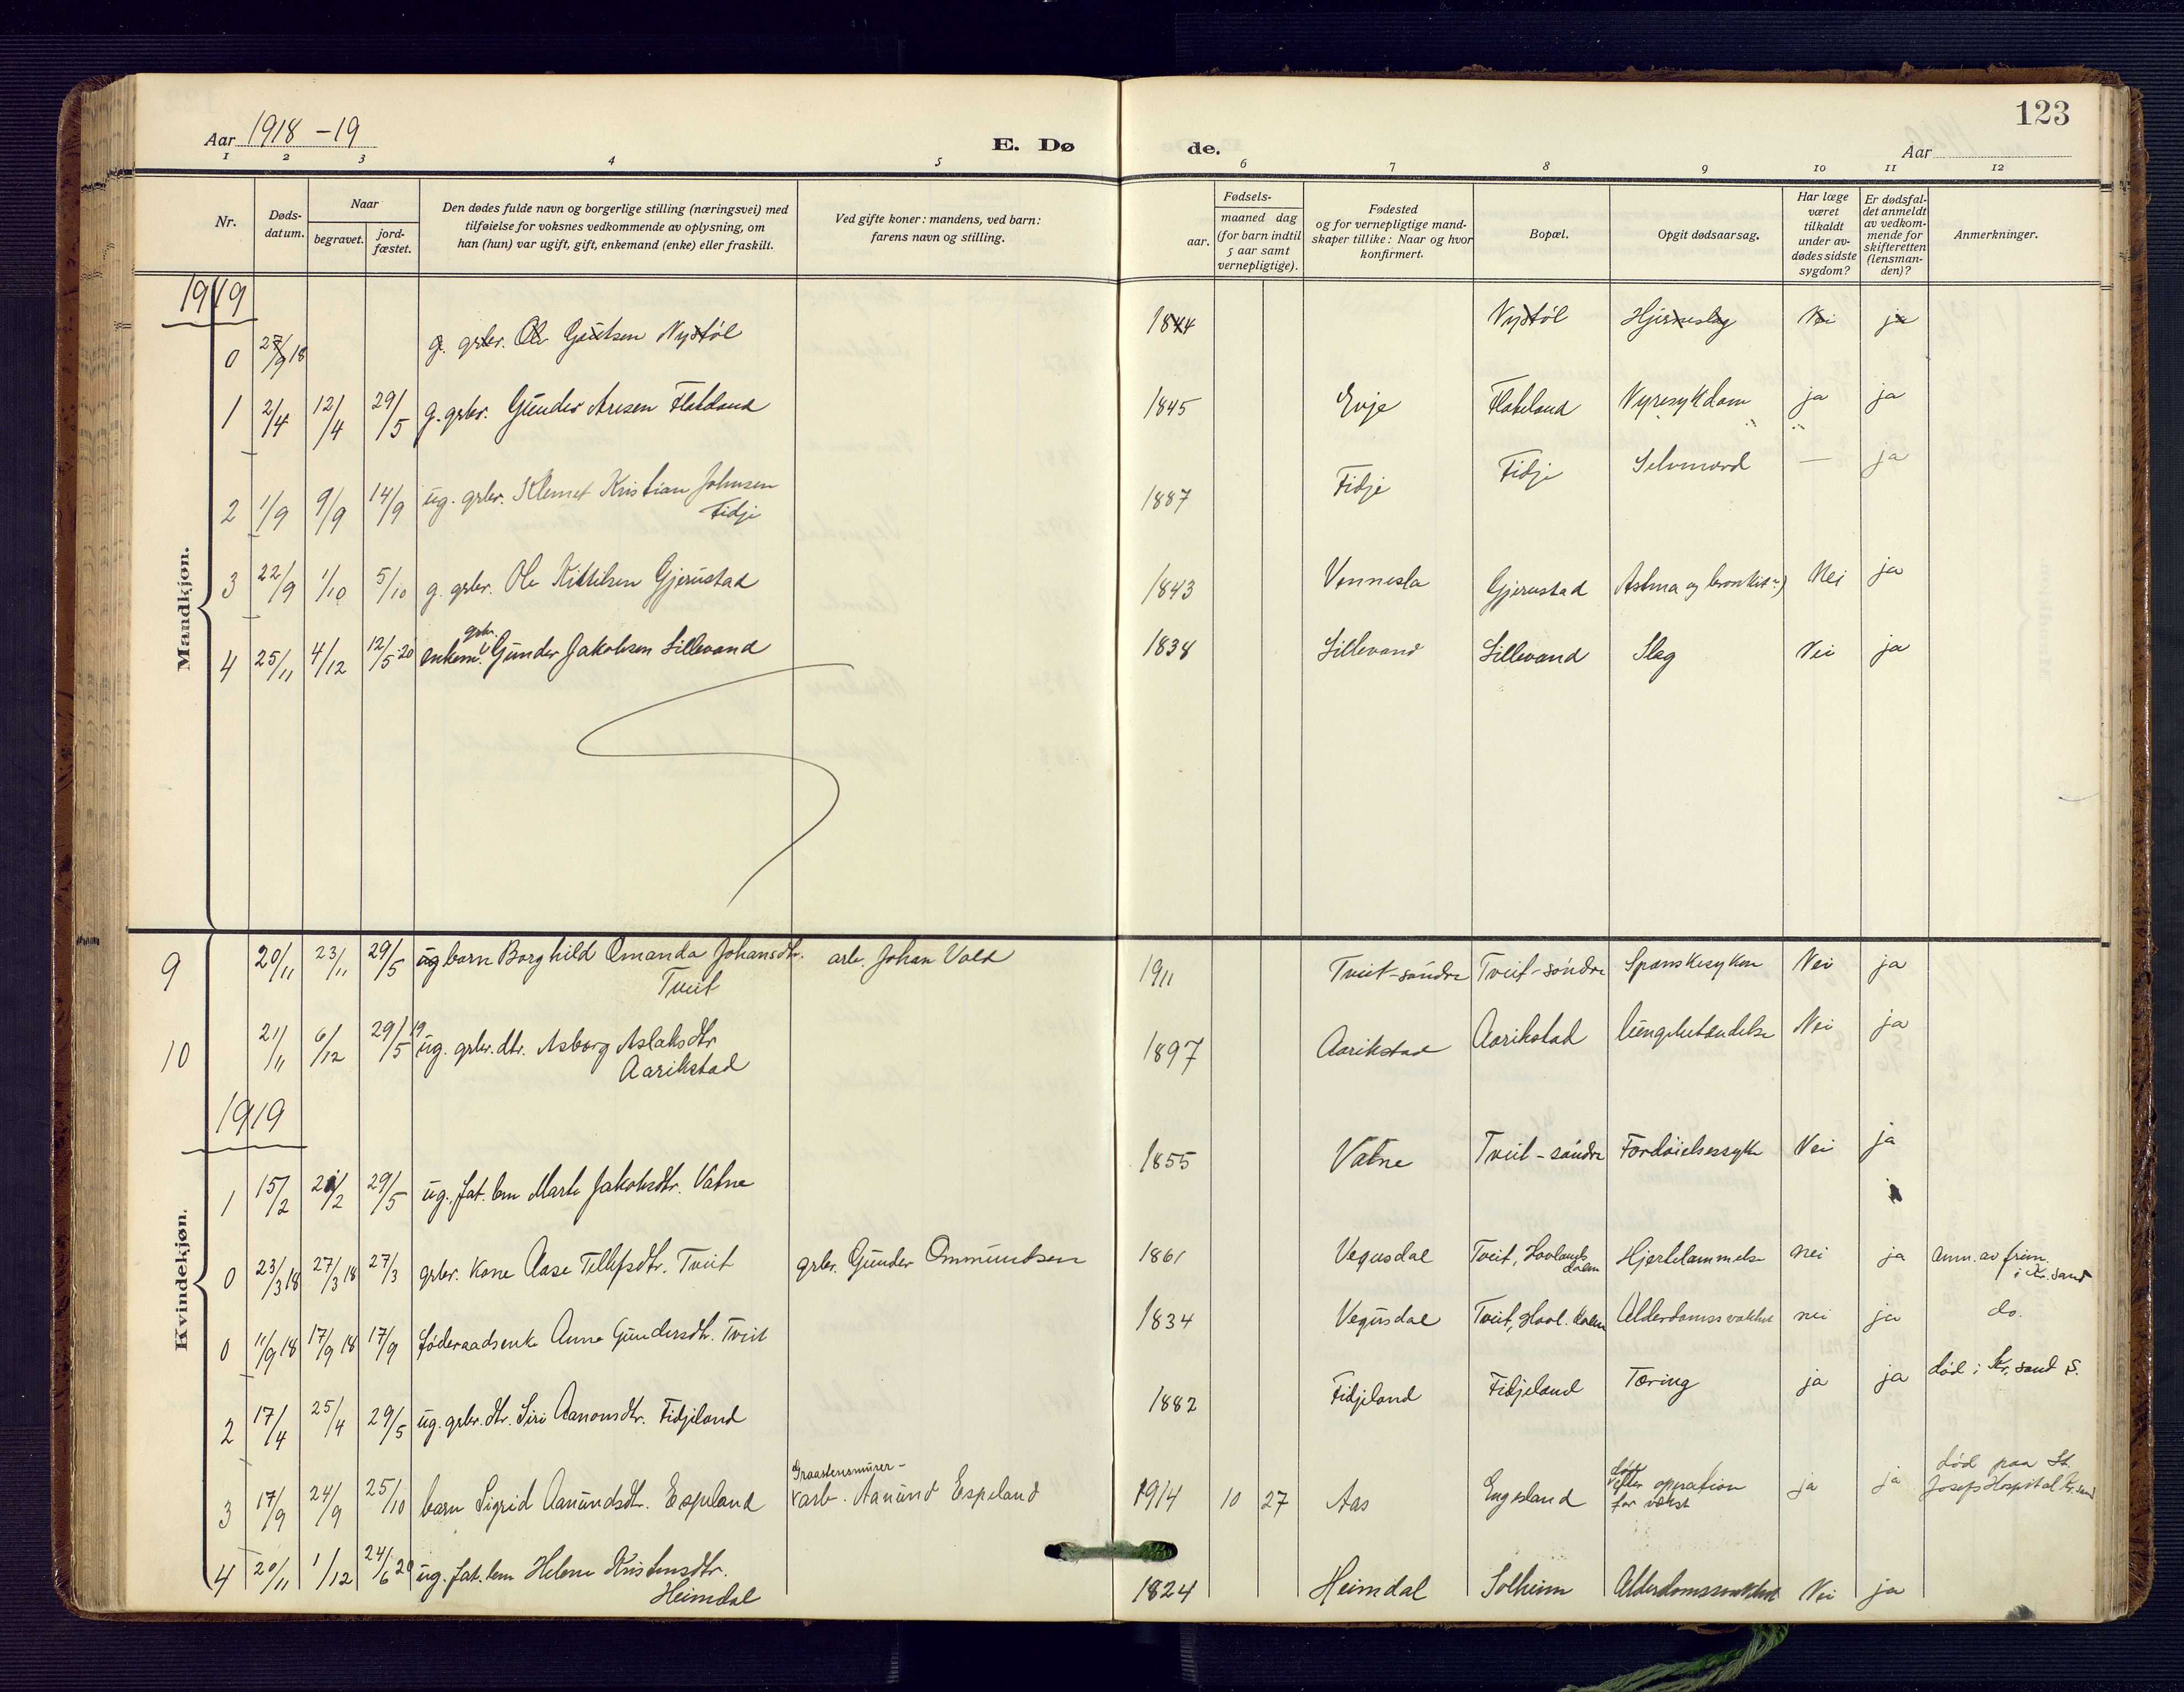 123
Aar 1918 – 19
E. Dø
de.
Aar
1 2 3 4 5 6 7 8 9 10 11 12
Nr.
Døds-
datum.
Naar
begravet.
jord-
fæstet.
Den dødes fulde navn og borgerlige stilling (næringsvei) med
tilføielse for voksnes vedkommende av oplysning, om
han (hun) var ugift, gift, enkemand (enke) eller fraskilt.
Ved gifte koner: mandens, ved barn:
farens navn og stilling.
Fødsels-
aar.
maaned dag
(for barn indtil
5 aar samt
vernepligtige).
Fødested
og for vernepligtige mand-
skaper tillike: Naar og hvor
konfirmert.
Bopæl.
Opgit dødsaarsag.
Har læge
været
tilkaldt
under av-
dødes sidste
sygdom?
Er dødsfal-
det anmeldt
av vedkom-
mende for
skifteretten
(lensman-
den)?
Anmerkninger.
Mandkjøn.
1919
0 27/9 18 g. grbr. Ole Gautsen Nystøl 1844 Nystøl Hjerneslag Nei ja
1 2/4 12/4 29/5 g. grbr. Gunder Aresen Flateland 1845 Evje Flateland Nyresykdom ja ja
2 1/9 9/9 14/9 ug. grbr. Klemet Kristian Johnsen
Fidje 1887 Fidje Fidje Selvmord — ja
3 22/9 1/10 5/10 g. grbr. Ole Kittilsen Gjerustad 1843 Vennesla Gjerustad Astma og bronkit Nei ja
grbr.
4 25/11 4/12 12/5 20 enkem. Gunder Jakobsen Lillevand 1838 Lillevand Lillevand Slag Nei ja
Kvindekjøn.
9 20/11 23/11 29/5 ug barn Borghild Omanda Johansdtr. arb. Johan Vold
Tveit 1911 Tveit-søndre Tveit-søndre Spanskesyken Nei ja
10 21/11 6/12 29/5 19 ug. grbr. dtr. Asborg Aslaksdtr
Aarikstad 1897 Aarikstad Aarikstad Lungebetændelse Nei ja
1919
1 15/2 21/2 29/5 ug. fat. lem Marte Jakobsdtr. Vatne 1855 Vatne Tveit – søndre Fordøielsessyke Nei ja
0 23/3 18 27/3 18 27/3 grbr. kone Aase Tellefsdtr. Tveit grbr. Gunder Ommundsen 1861 Vegusdal Tveit, Hovlands
dalen Hjertelammelse nei ja Anm. av frim.
i Kr.sand
0 11/9 18 17/9 18 17/9 føderaadsenke Anne Gundersdtr. Tveit 1834 Vegusdal Tveit, Hovl. dalen Alderdomssvakhet nei ja do.
2 17/4 25/4 29/5 ug. grbr. dtr. Siri Aanonsdtr. Fidjeland 1882 Fidjeland Fidjeland Tæring ja ja død i Kr.sand S.
Graastensmurer-
3 17/9 24/9 25/10 barn Sigrid Aanundsdtr. Espeland arb. Aanund Espeland 1914 10 27 Aas Engesland død
efter operation
for vekst ja ja død paa St.
Josefs Hospital Kr.sand
4 20/11 1/12 24/6 20 ug. fat. lem Helene Kristensdtr.
Heimdal 1824 Heimdal Solheim Alderdomssvakhet Nei ja